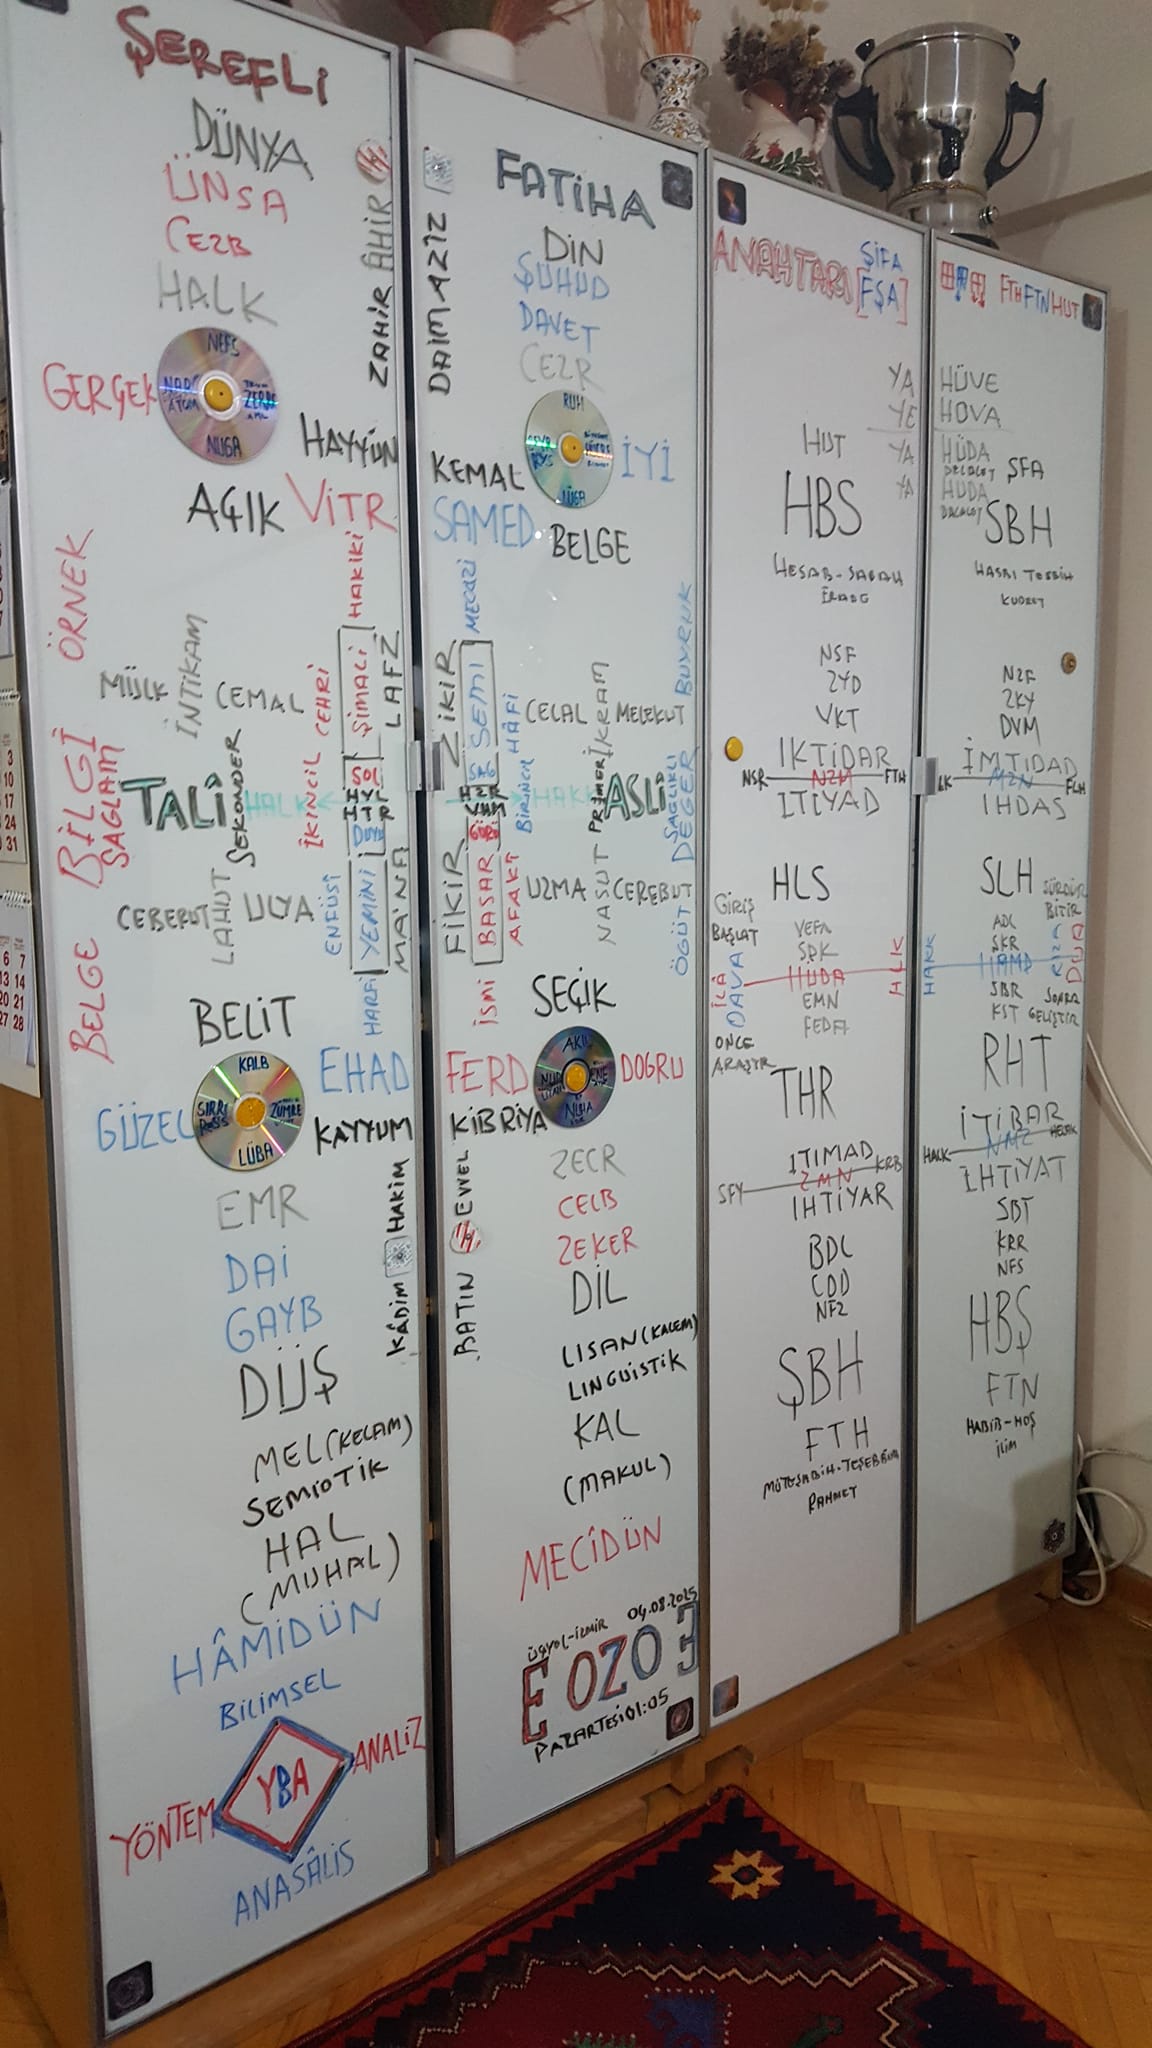 ŞEREFLİ
DÜNYA
ÜNSA
CEZB
HALK
ZAHİR ÂHİR
NEFS
NUGA
GERÇEK
HAYYÜN
AÇIK VİTR
ÖRNEK
HAKİKİ
MÜLK
İNTİKAM
CEMAL
CEHRİ
ŞİMALİ
LAFZ
BİLGİ
SAĞLAM
TALÎ
HALK
SEKONDER
İKİNCİL
SOL
HYL
HTR
CEBERUT
LAHUT
ULYA
ENFÜSİ
YEMİNİ
MA'NA
BELGE
HARFİ
BELİT
KALB
ZÜMRE
LÜBA
GÜZEL
EHAD
KAYYUM
EMR
DAİ
GAYB
KÂDİM HAKİM
DÜŞ
MEL(KELAM)
SEMİOTİK
HAL
(MUHAL)
HÂMİDÜN
BİLİMSEL
YÖNTEM YBA ANALİZ
ANASÂLİS
FATİHA
DAİM AZÎZ
DİN
ŞUHUD
DAVET
CEZR
RUH
İYİ
KEMAL
SAMED
BELGE
MECAZİ
ZİKİR
SEMİ
HÂFİ
CELAL
İKRAM
MELEKUT
BUYRUK
SAĞ
HZR
VHM
BİRİNCİL
HAKK
PRİMER
ASLÎ
SAĞLIKLI
DEĞER
FİKİR
BASAR
AFAKİ
UZMA
NASUT
CEREBUT
ÖĞÜT
İSMİ
SEÇİK
AKIL
NUHA
FERD
DOĞRU
KİBRİYA
BATIN EVVEL
ZECR
CELB
ZEKER
DİL
LISAN(KALEM)
LINGUISTİK
KAL
(MAKUL)
MECÎDÜN
ÜÇYOL-İZMİR 04.08.2025
E OZO 3
PAZARTESİ 01:05
ANAHTARI ŞİFA
[FŞA]
YA
YE
YA
YA
HUT
HBS
HESAB-SABAH
İRADE
NSF
ZYD
VKT
IKTİDAR
NSR NZM FTH
ITİYAD
HLS
GİRİŞ
BAŞLAT
VEFA
ŞPK
HÜDA
HLK
İLÂ
DAVA
EMN
FEDA
ÖNCE
ARAŞTIR
THR
ITIMAD
SFY ZMN KRB
IHTİYAR
BDL
CDD
NFZ
ŞBH
FTH
MÜTEŞABİH-TEŞEBBÜH
RAHMET
FTH FTN HUT
HÜVE
HOVA
HÜDA
DELALET
HUDA
DALALET
ŞFA
SBH
HASBI TESBİH
KUDRET
NZF
ZKY
DVM
İMTİDAD
MZN
IHDAS
SLH
SÜRDÜR
BİTİR
ADL
ŞKR
HAMD
HAKK
DUA
SBR
KST
SONRA
GELİŞTİR
RHT
İTİBAR
HALK NMZ HELAK
IHTİYAT
SBT
KRR
NFS
HBŞ
FTN
HABİB-HOŞ
İLİM